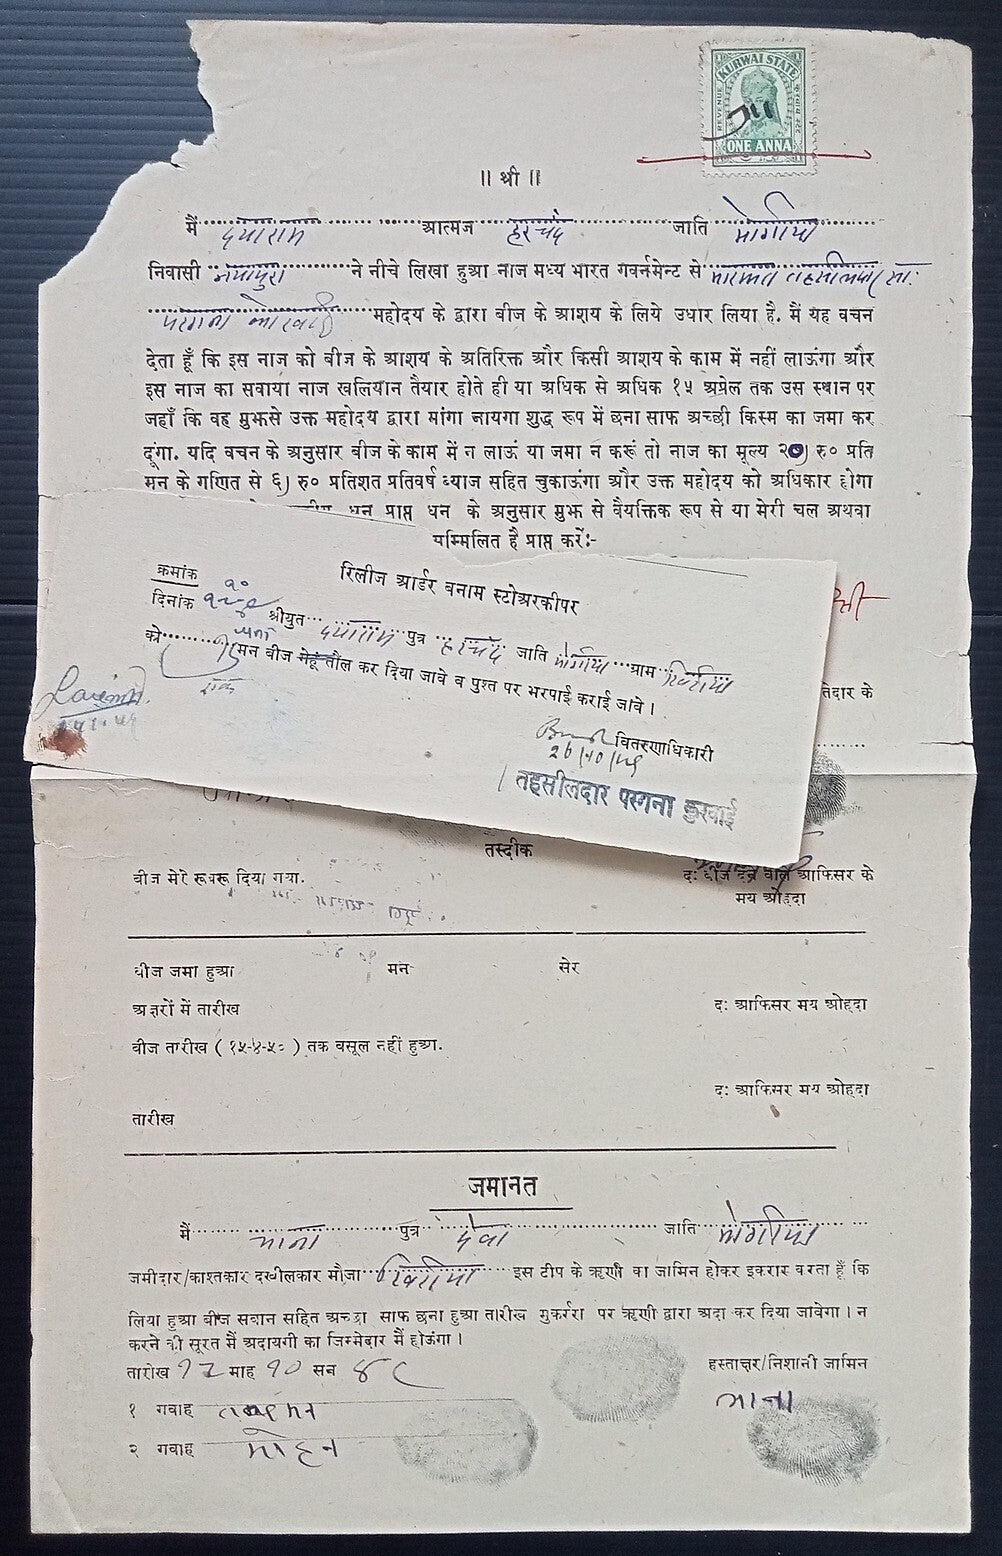 KURWAI STATE
REVENUE
ONE ANNA
॥ श्री ॥
मैं दयाराम आत्मज हरचंद जाति मोगीया
निवासी नयापुरा ने नीचे लिखा हुआ नाज मध्य भारत गवर्नमेन्ट से मारफत तहसीलदार सा.
परगना महोदय के द्वारा बीज के आशय के लिये उधार लिया है. मैं यह वचन
देता हूँ कि इस नाज को बीज के आशय के अतिरिक्त और किसी आशय के काम में नहीं लाऊंगा और
इस नाज का सवाया नाज खलियान तैयार होते ही या अधिक से अधिक १५ अप्रेल तक उस स्थान पर
जहाँ कि वह मुझसे उक्त महोदय द्वारा मांगा जायगा शुद्ध रूप में छना साफ अच्छी किस्म का जमा कर
दूंगा. यदि वचन के अनुसार बीज के काम में न लाऊं या जमा न करूं तो नाज का मूल्य २०) रु० प्रति
मन के गणित से ६) रु० प्रतिशत प्रतिवर्ष व्याज सहित चुकाऊंगा और उक्त महोदय को अधिकार होगा
धन प्राप्त धन के अनुसार मुझ से वैयक्तिक रूप से या मेरी चल अथवा
सम्मिलित है प्राप्त करें:-
रिलीज आर्डर बनाम स्टोअरकीपर
क्रमांक १०
दिनांक
श्रीयुत दयाराम पुत्र हरचंद जाति मोगीया ग्राम खिरीया
को मन बीज गेहूं तौल कर दिया जावे व पुश्त पर भरपाई कराई जावे ।
वितरणाधिकारी
26/10/49
तहसीलदार परगना कुरवाई
तिदार के
तस्दीक
बीज मेरे रूबरू दिया गया.
द: बीज देने वाले आफिसर के
मय ओहदा
बीज जमा हुआ मन सेर
अक्षरों में तारीख द: आफिसर मय ओहदा
बीज तारीख ( १५-४-५० ) तक वसूल नहीं हुआ.
द: आफिसर मय ओहदा
तारीख
जमानत
मैं माना पुत्र देवा जाति मोगीया
जमीदार/काश्तकार दखीलकार मौजा खिरीया इस टीप के ऋणी का जामिन होकर इकरार करता हूँ कि
लिया हुआ बीज सवान सहित अच्छा साफ छना हुआ तारीख मुकर्ररा पर ऋणी द्वारा अदा कर दिया जावेगा । न
करने की सूरत में अदायगी का जिम्मेदार मैं होऊंगा ।
तारीख १२ माह १० सन ४९
हस्ताक्षर/निशानी जामिन
माना
१ गवाह
२ गवाह मोहन